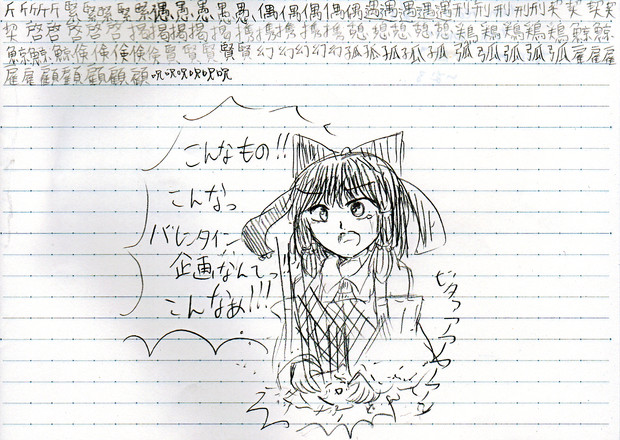 斤斤斤斤緊緊緊緊緊愚愚愚愚愚偶偶偶偶偶遇遇遇遇遇刑刑刑刑刑契契契契
契啓啓啓啓啓掲掲掲掲掲携携携携携憩憩憩憩憩鶏鶏鶏鶏鶏鯨鯨
鯨鯨鯨倹倹倹倹倹賢賢賢賢賢幻幻幻幻幻孤孤孤孤孤弧弧弧弧弧雇雇雇
雇雇顧顧顧顧顧呪呪呪呪呪
こんなもの!!
こんなっ
バレンタイン
企画なんてっ!!
こんなあ!!!